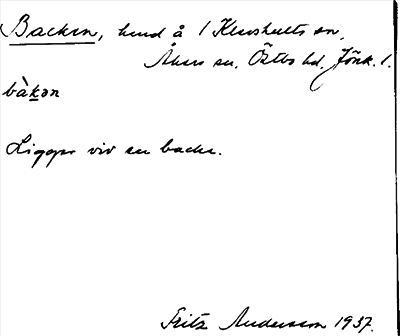 Backen, hmd å 1 Klevshults sn,
Åkers sn. Östbo hd. Jönk. l.
bàkən
Ligger vid en backe.
Fritz Andersson 1937.